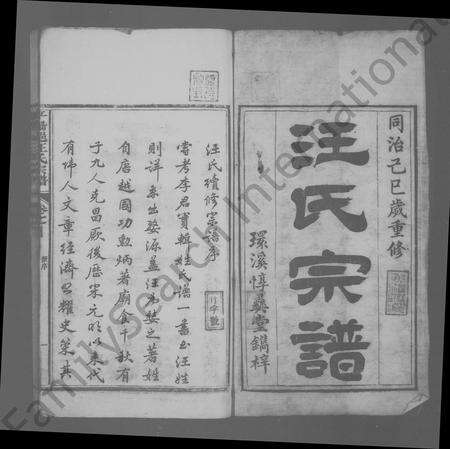 同治己巳歲重修
汪氏宗譜
環溪惇彝堂鐫梓
汪氏續修宗譜序
嘗考李君實輯姓氏譜一書出汪姓
則詳系出婺源蓋汪本婺之著姓
自唐越國功勳炳著廟食千秋有
子九人克昌厥後歷宋元明以來代
有偉人文章經濟名耀史策其
FamilySearch International